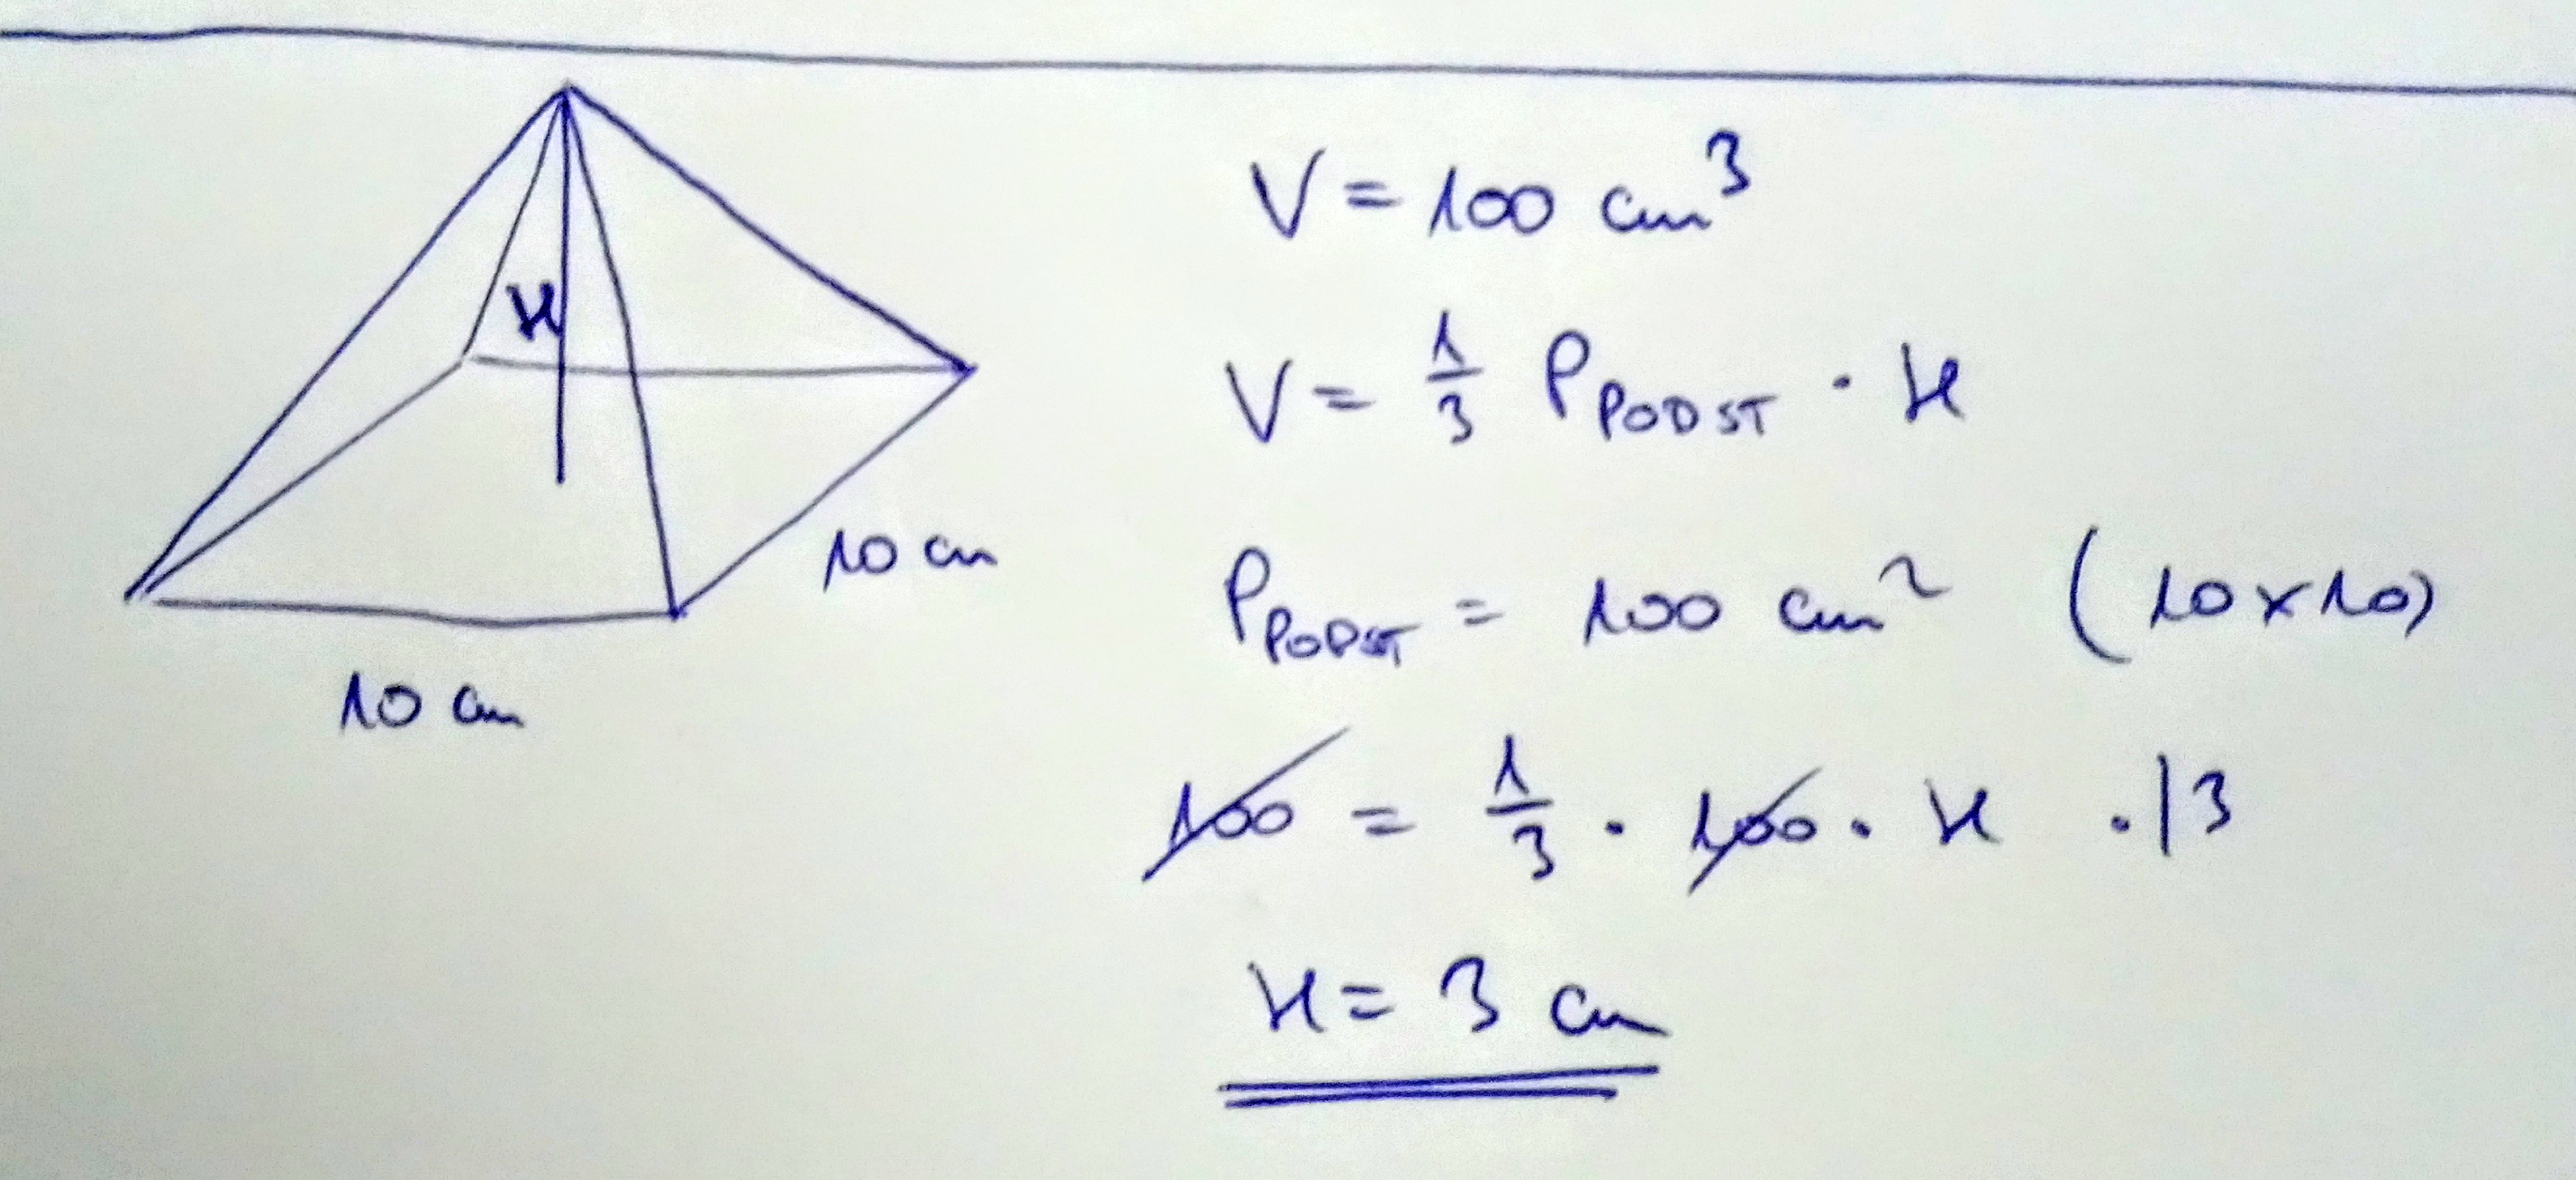 H
10 cm
10 cm
V = 100 cm³
V = 1/3 P PODST · H
P PODST = 100 cm² (10x10)
100 = 1/3 · 100 · H ·|3
H = 3 cm